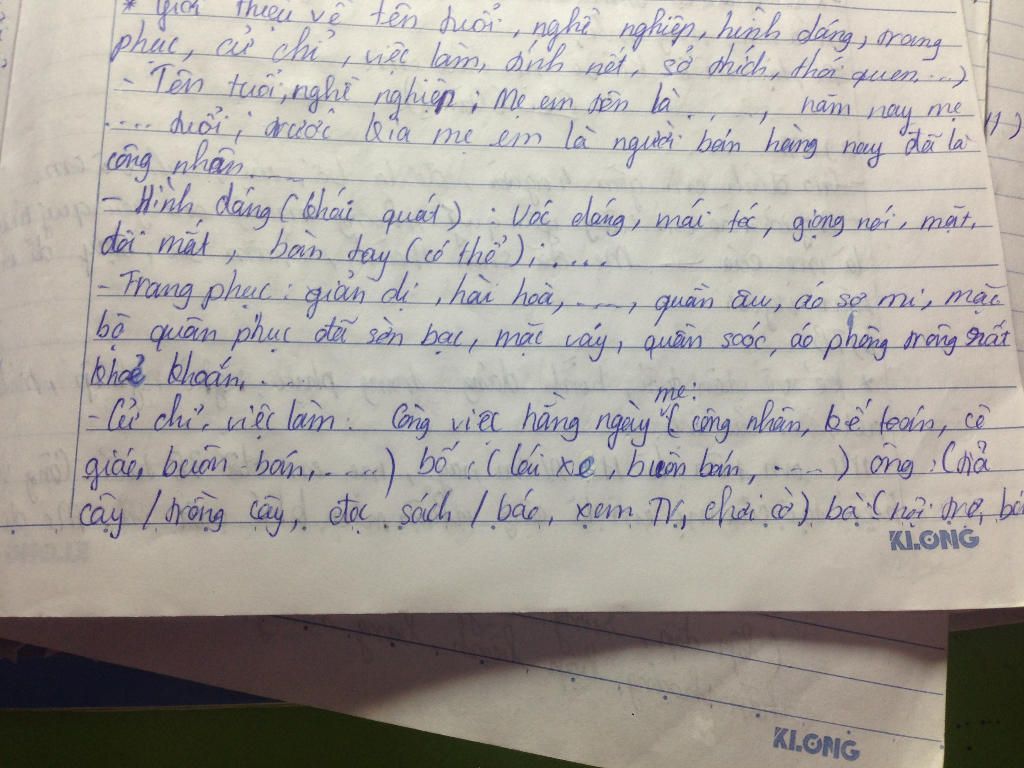 * Giới thiệu về tên tuổi, nghề nghiệp, hình dáng, trang
phục, cử chỉ, việc làm, tính nết, sở thích, thói quen ...)
- Tên tuổi, nghề nghiệp; Mẹ em tên là ..., năm nay mẹ
.... tuổi; trước kia mẹ em là người bán hàng nay đã là
công nhân. ...
- Hình dáng (khái quát): Vóc dáng, mái tóc, giọng nói, mặt,
đôi mắt, bàn tay (có thể); ....
- Trang phục: giản dị, hài hoà, ...., quần âu, áo sơ mi, mặc
bộ quân phục đã sờn bạc, mặc váy, quần soóc, áo phông trông rất
khoẻ khoắn, ....
- Cử chỉ, việc làm: Công việc hằng ngày mẹ: (công nhân, kế toán, cô
giáo, buôn bán, ....) bố: (lái xe, buôn bán, ....) ông: (
cây / trồng cây, đọc sách / báo, xem TV, chơi cờ) bà (nội trợ,
KLONG
KLONG